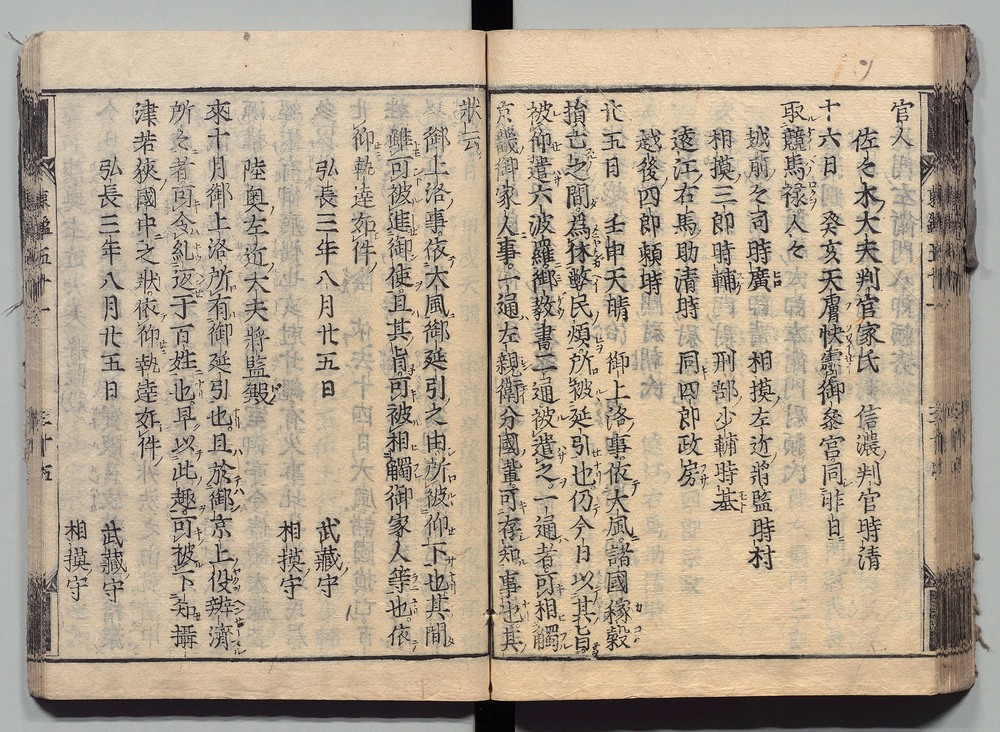 官人
佐々木大夫判官家氏　信濃判官時清
十六日　癸亥天膚快霽御參宮同昨日
取競馬祿人々
越前々司時廣　相摸左近將監時村
相摸三郎時輔　刑部少輔時基
遠江右馬助清時　同四郎政房
越後四郎頼時
廿五日　壬申天晴　御上洛事依大風諸國稼穀
損亡之間爲休弊民煩所被延引也仍今日以其旨
被仰遣六波羅御教書二通被遣之一通者可相觸
京畿御家人事一通左親衛分國輩可存知事也其
狀云
御上洛事依大風御延引之由所被仰下也其間
雖可被進御使且其旨可被相觸御家人等也依
仰執達如件
弘長三年八月廿五日　武藏守
相摸守
陸奥左近大夫將監殿
來十月御上洛所有御延引也且於御京上役辨濟
所々者可令糺返于百姓也早以此趣可被下知攝
津若狹國中之狀依仰執達如件
弘長三年八月廿五日　武藏守
相摸守
東鑑五十一
三十五